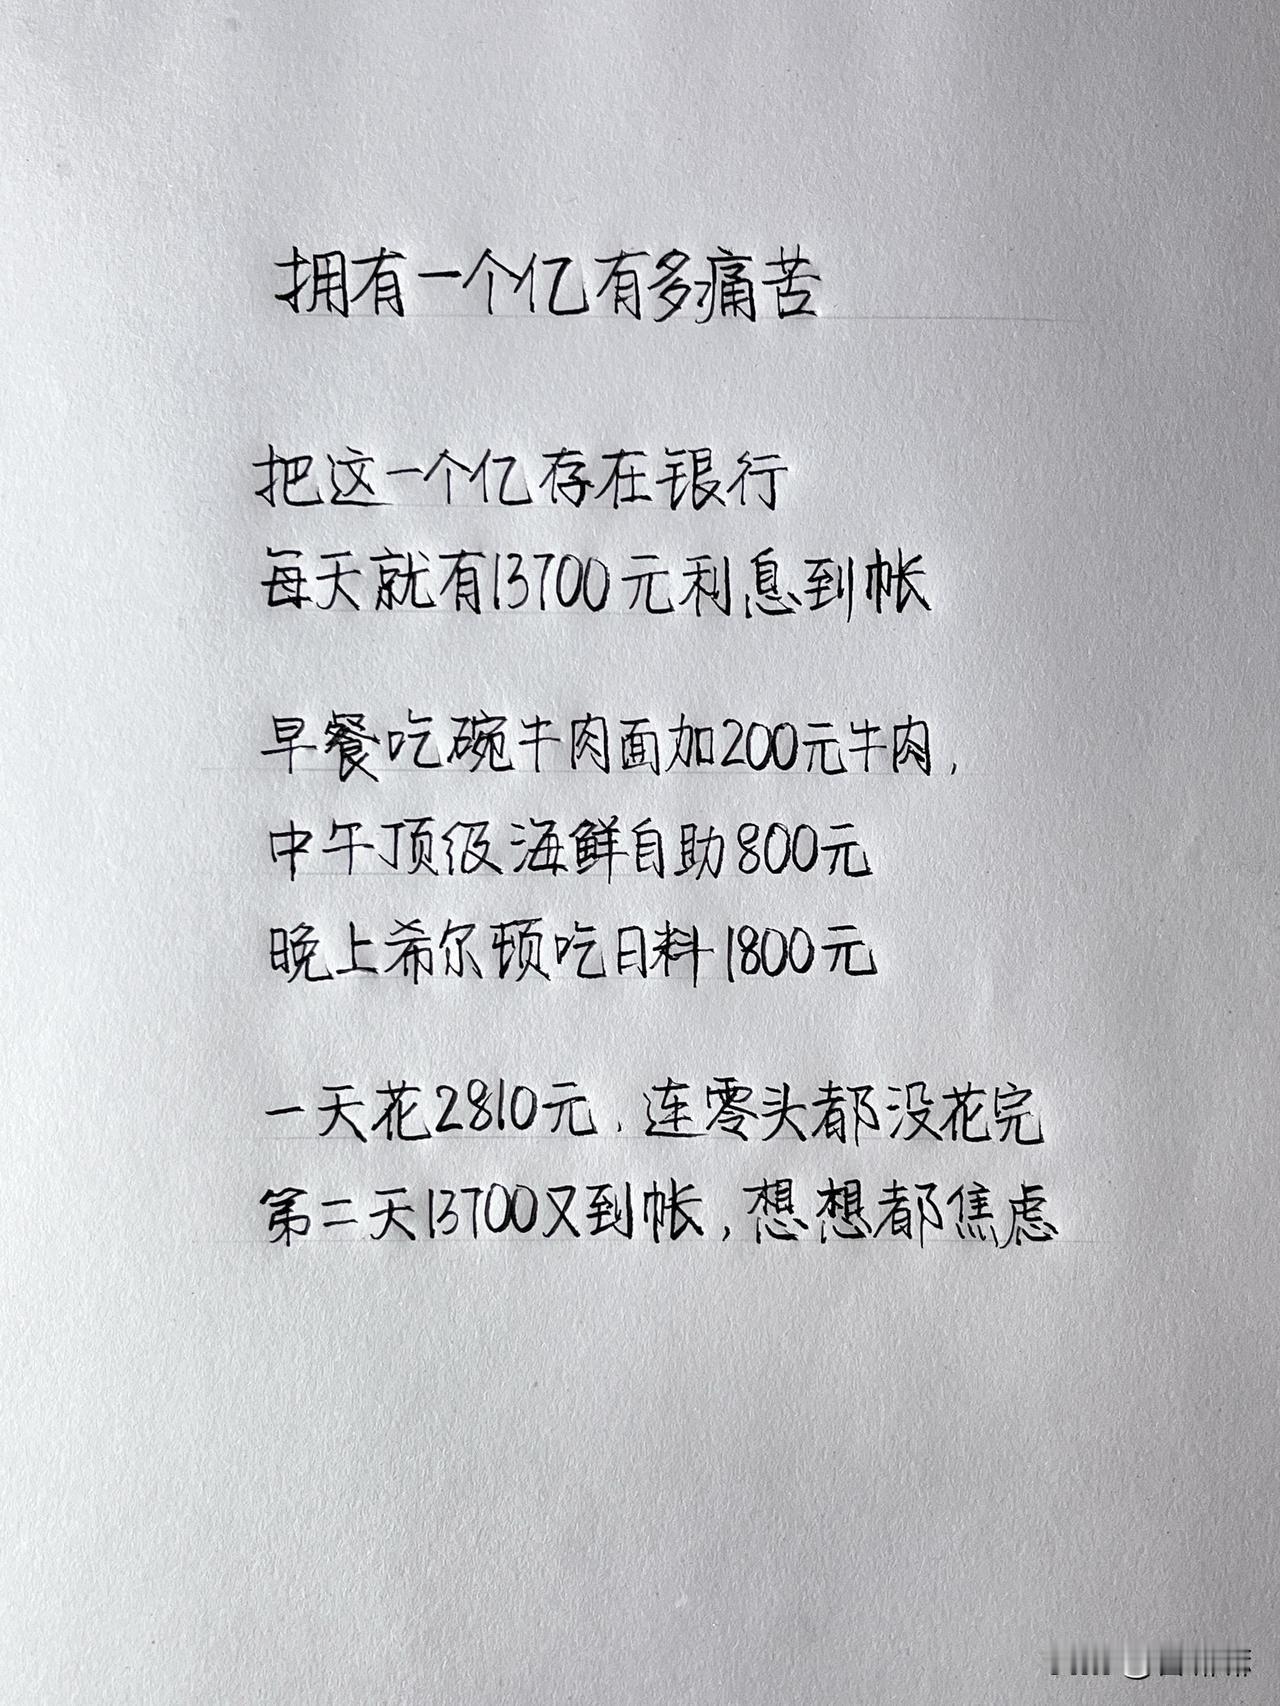 拥有一个亿有多痛苦
把这一个亿存在银行
每天就有13700元利息到帐
早餐吃碗牛肉面加200元牛肉,
中午顶级海鲜自助800元
晚上希尔顿吃日料1800元
一天花2810元,连零头都没花完
第二天13700又到帐,想想都焦虑